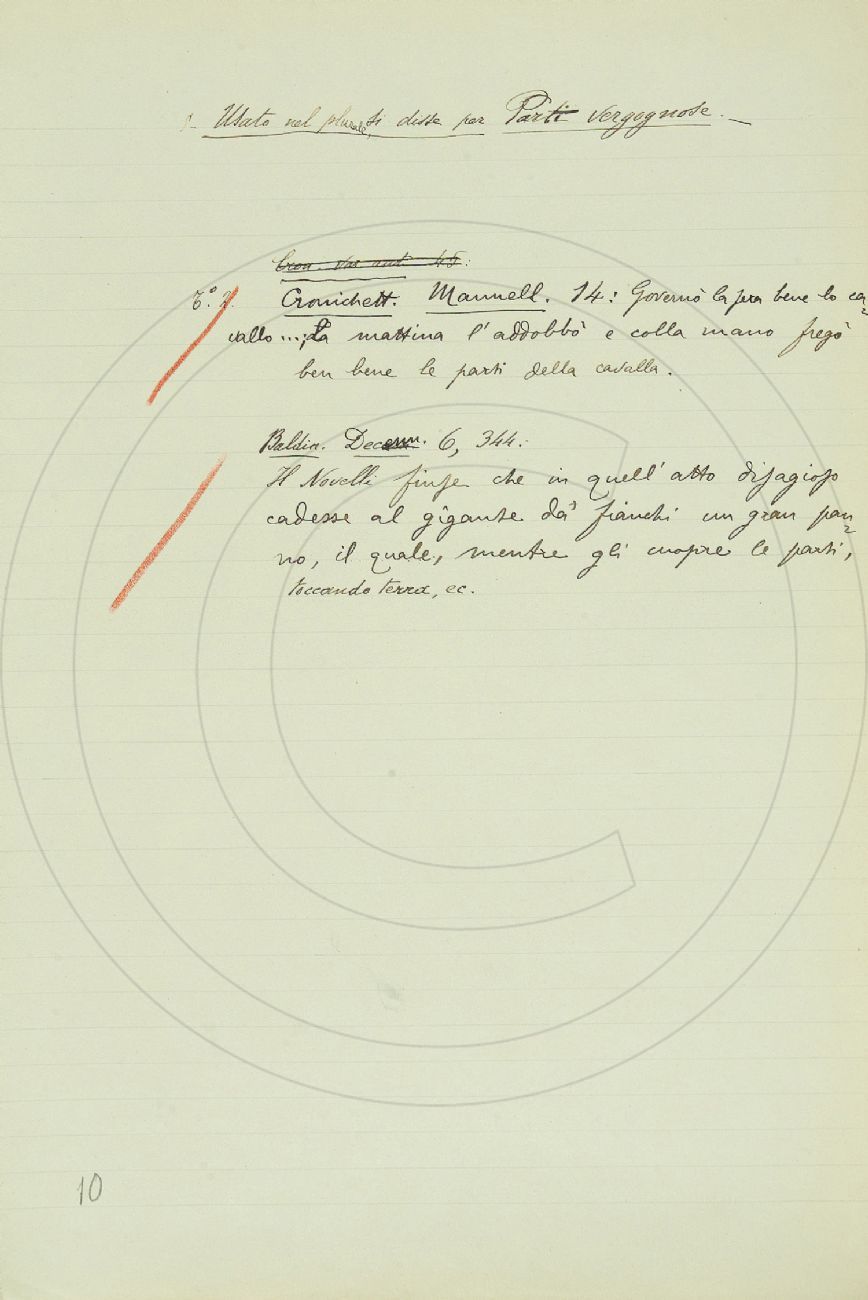 Usato nel plurale, si disse per Parti vergognose. —
Cron. Vat. ant. 45:
T.° 2. Cronichett. Mannell. 14: Governò la sera bene lo ca-
vallo...; La mattina l'addobbò e colla mano fregò
ben bene le parti della cavalla.
Baldin. Decenn. 6, 344:
Il Novelli finse che in quell'atto disagioso
cadesse al gigante da' fianchi un gran pan-
no, il quale, mentre gli cuopre le parti,
toccando terra, ec.
10